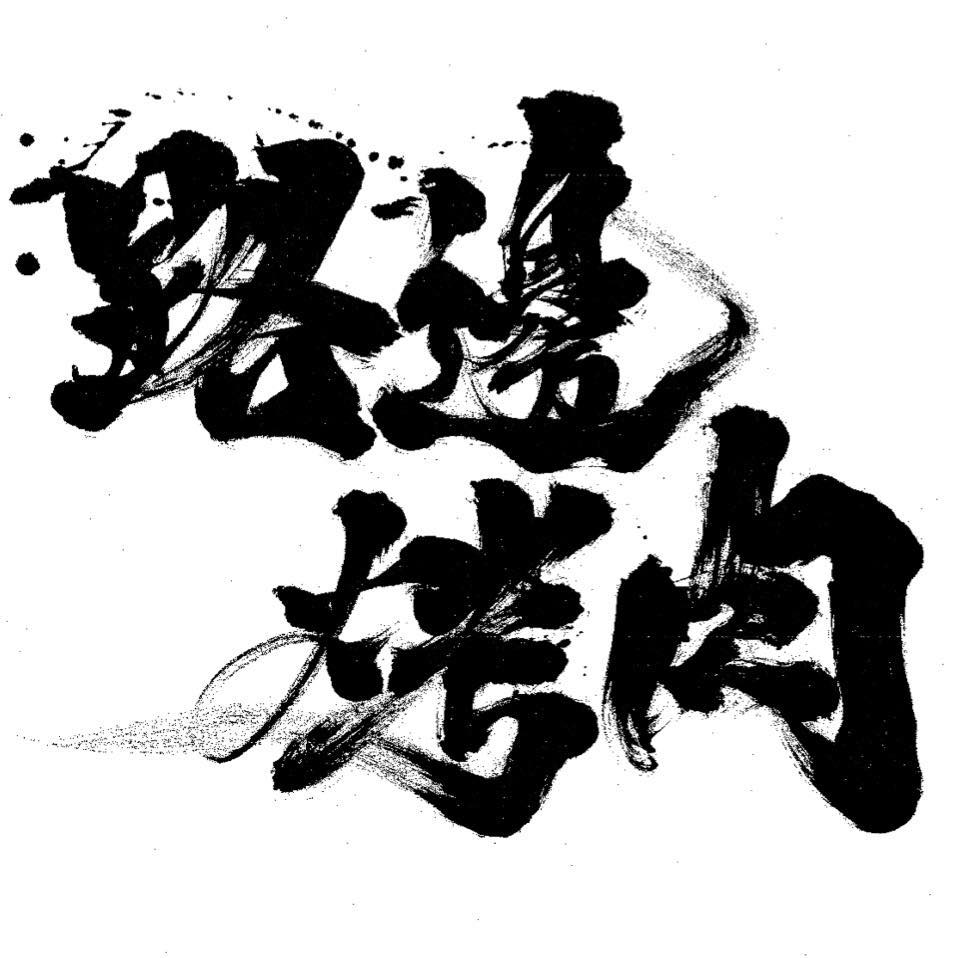 路邊
烤肉